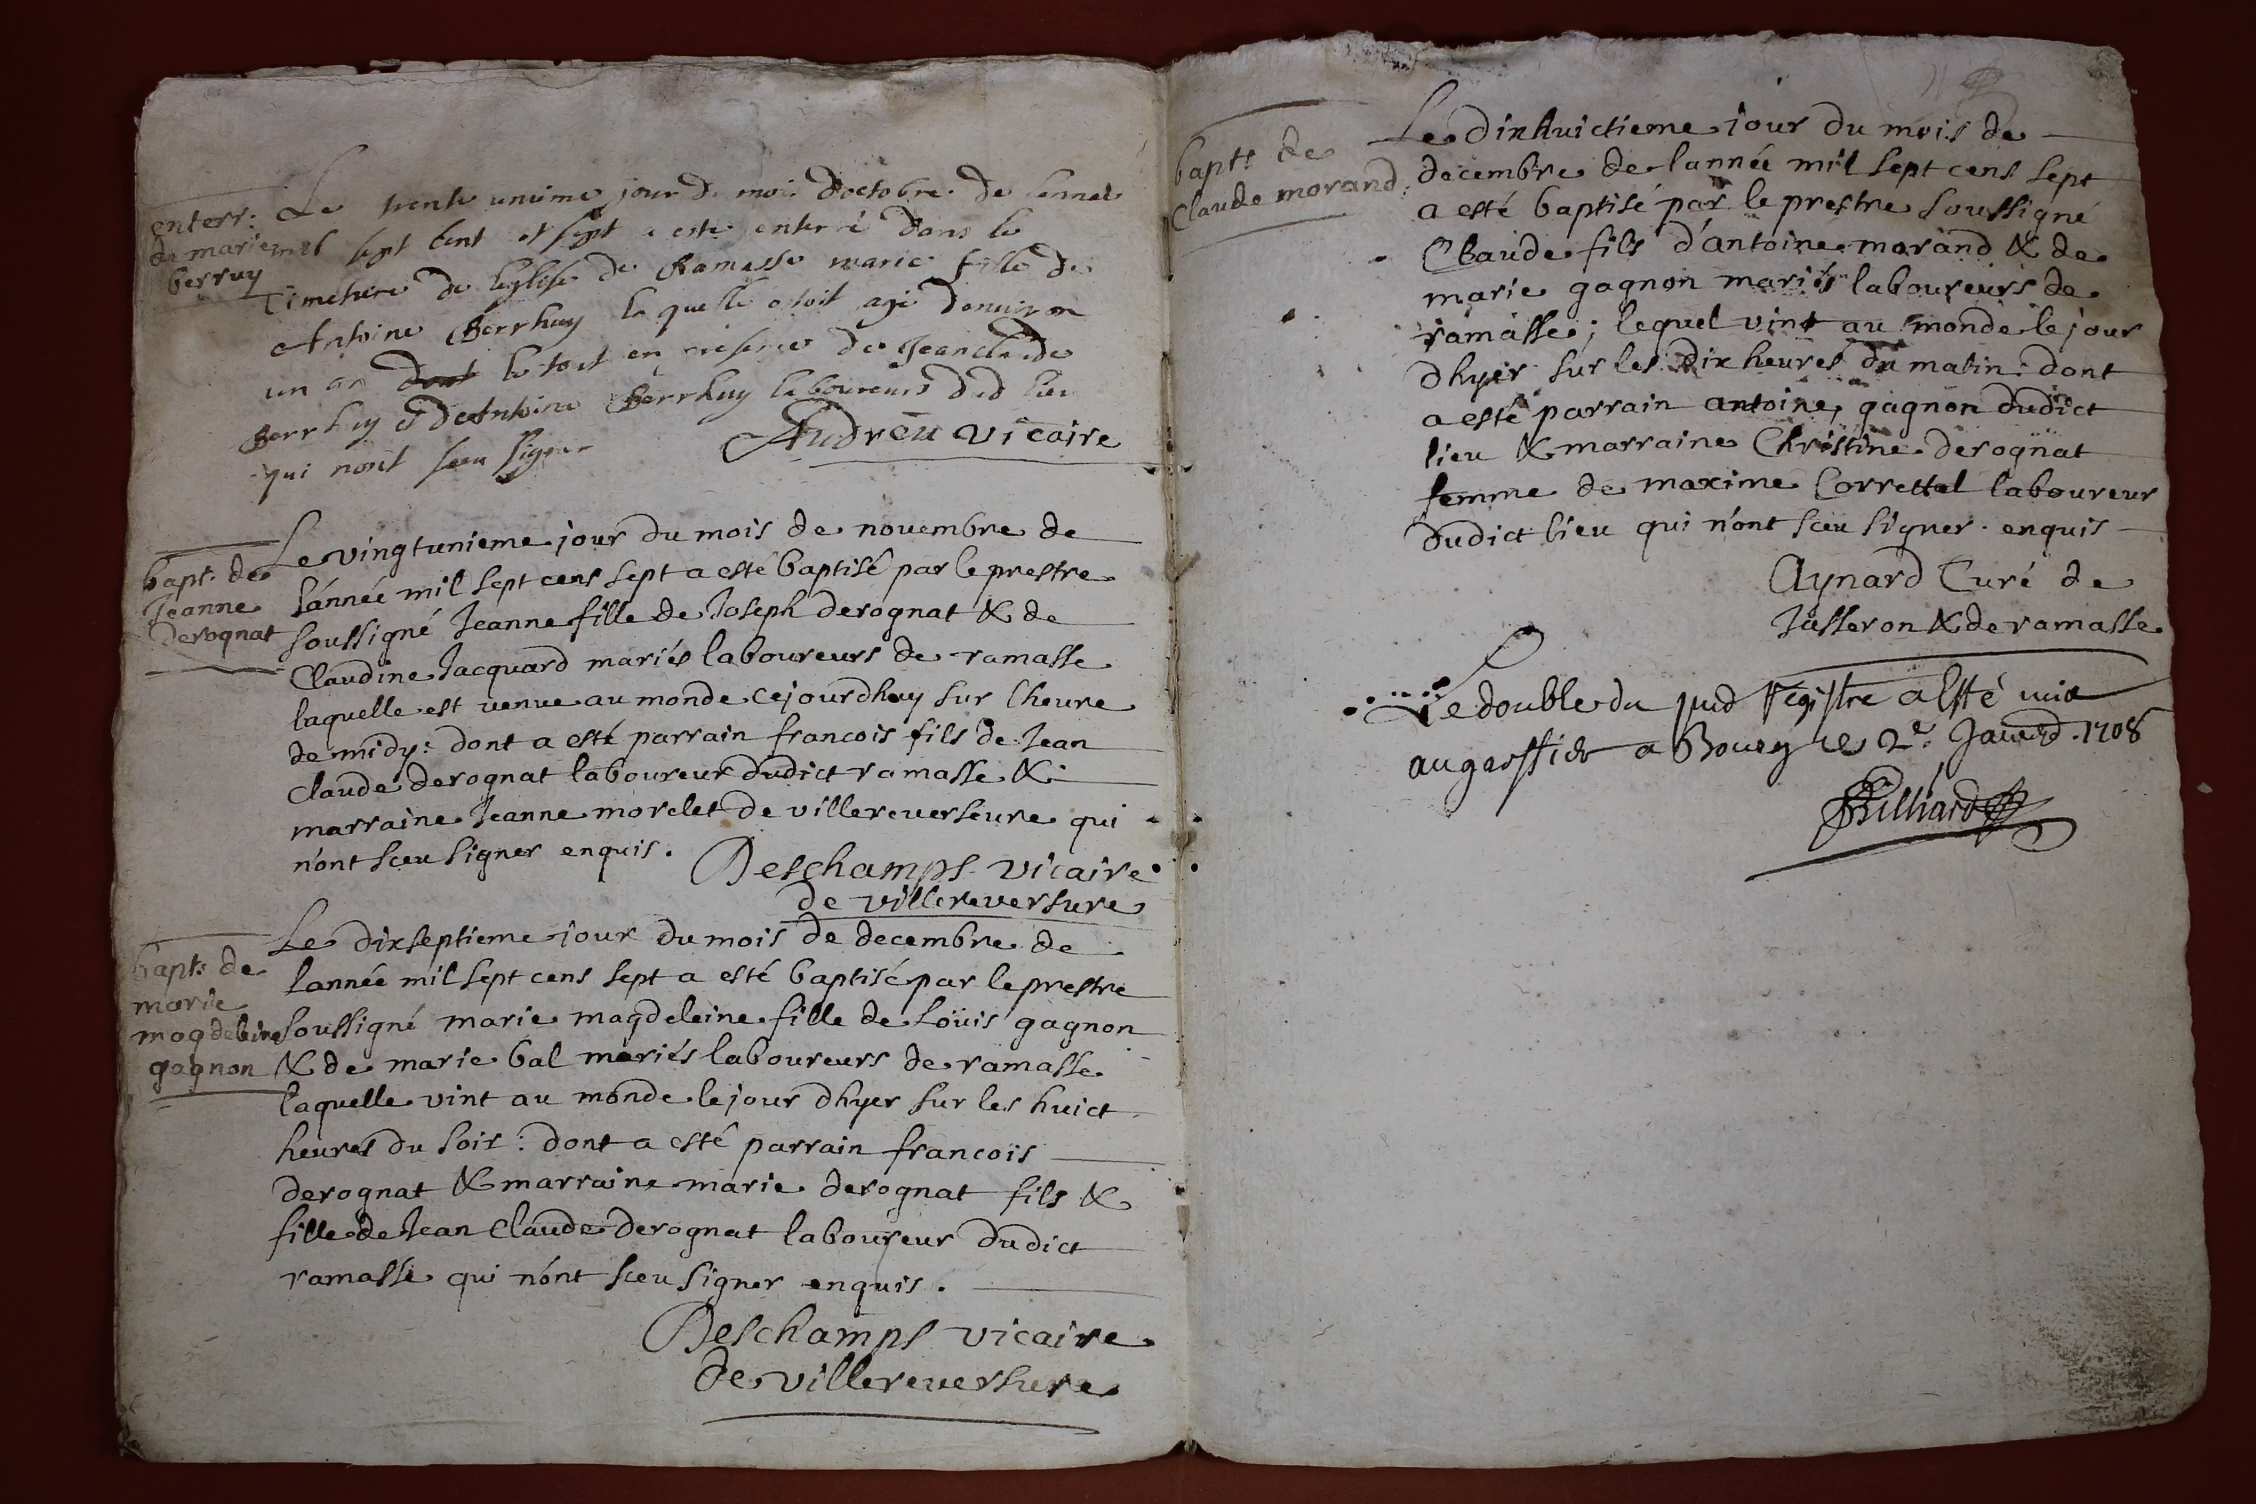 enterr:
de marie
berruy
Le trente unieme jour du mois doctobre de lannee
mil sept cent et sept a esté enterré dans le
Cimetiere de leglise de Ramasse marie fille de
Antoine Berrhuy laquelle estoit agé denuiron
un an dont le tout en presence de Jeanclaude
Berrhuy & deAntoine Berrhuy laboureurs dud lieu
qui nont sceu signer
Audreu vicaire
bapt: de
Jeanne
derognat
Le vingtunieme jour du mois de nouembre de
lánnée mil sept cens sept a esté baptisé par le prestre
soussigné Jeanne fille de Joseph derognat & de
Claudine Jacquard mariés laboureurs de ramasse
laquelle est venue au monde cejourdhuy sur lheure
de midy: dont a esté parrain francois fils de Jean
claude derognat laboureur dudict ramasse &
marraine Jeanne morelet de villereverseure qui
n'ont sceu signer enquis.
Deschamps vicaire
de villereuersure
bapt: de
marie
magdeleine
gagnon
Le dixseptieme jour du mois de decembre de
lannée mil sept cens sept a esté baptisé par le prestre
soussigné marie magdeleine fille de Loüis gagnon
& de marie bal mariés laboureurs de ramasse
laquelle vint au monde le jour dhyer sur les huict
heures du soir: dont a esté parrain francois
derognat & marraine marie derognat fils &
fille de Jean Claude derognat laboureur dudict
ramasse qui n'ont sceu signer enquis.
Deschamps vicaire
de villereuersure
bapt: de
Claude morand
Le dixhuictieme jour du mois de
decembre de lannée mil sept cens sept
a esté baptisé par le prestre soussigné
Claude fils d'antoine morand & de
marie gagnon mariés laboureurs de
ramasse; lequel vint au monde le jour
dhyer sur les dix heures du matin: dont
a esté parrain antoine gagnon dudict
lieu & marraine Christine derognat
femme de maxime Correttel laboureur
dudict lieu qui n'ont sceu signer enquis
Aynard Curé de
Jasseron & de ramasse
Le double du pnd registre a esté mis
au greffier a Bourg le 2e. Janvd. 1708